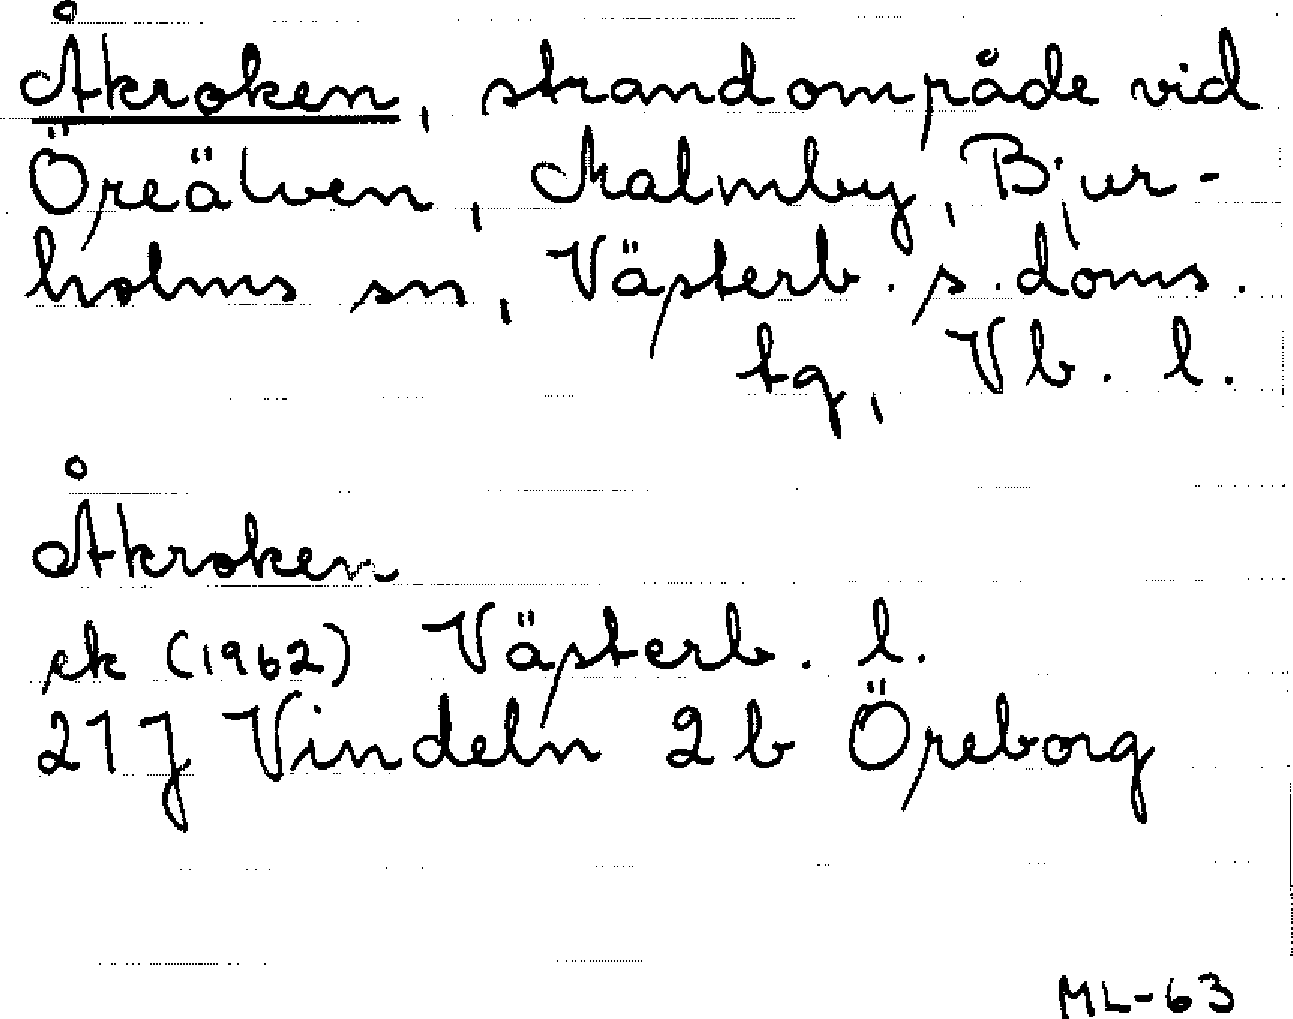 Åkroken, strandområde vid
Öreälven, Malmby, Bjur-
holms sn, Västerb. s. doms.
tg, Vb. l.
Åkroken
ek (1962) Västerb. l.
21J Vindeln 2b Öreborg
ML-63